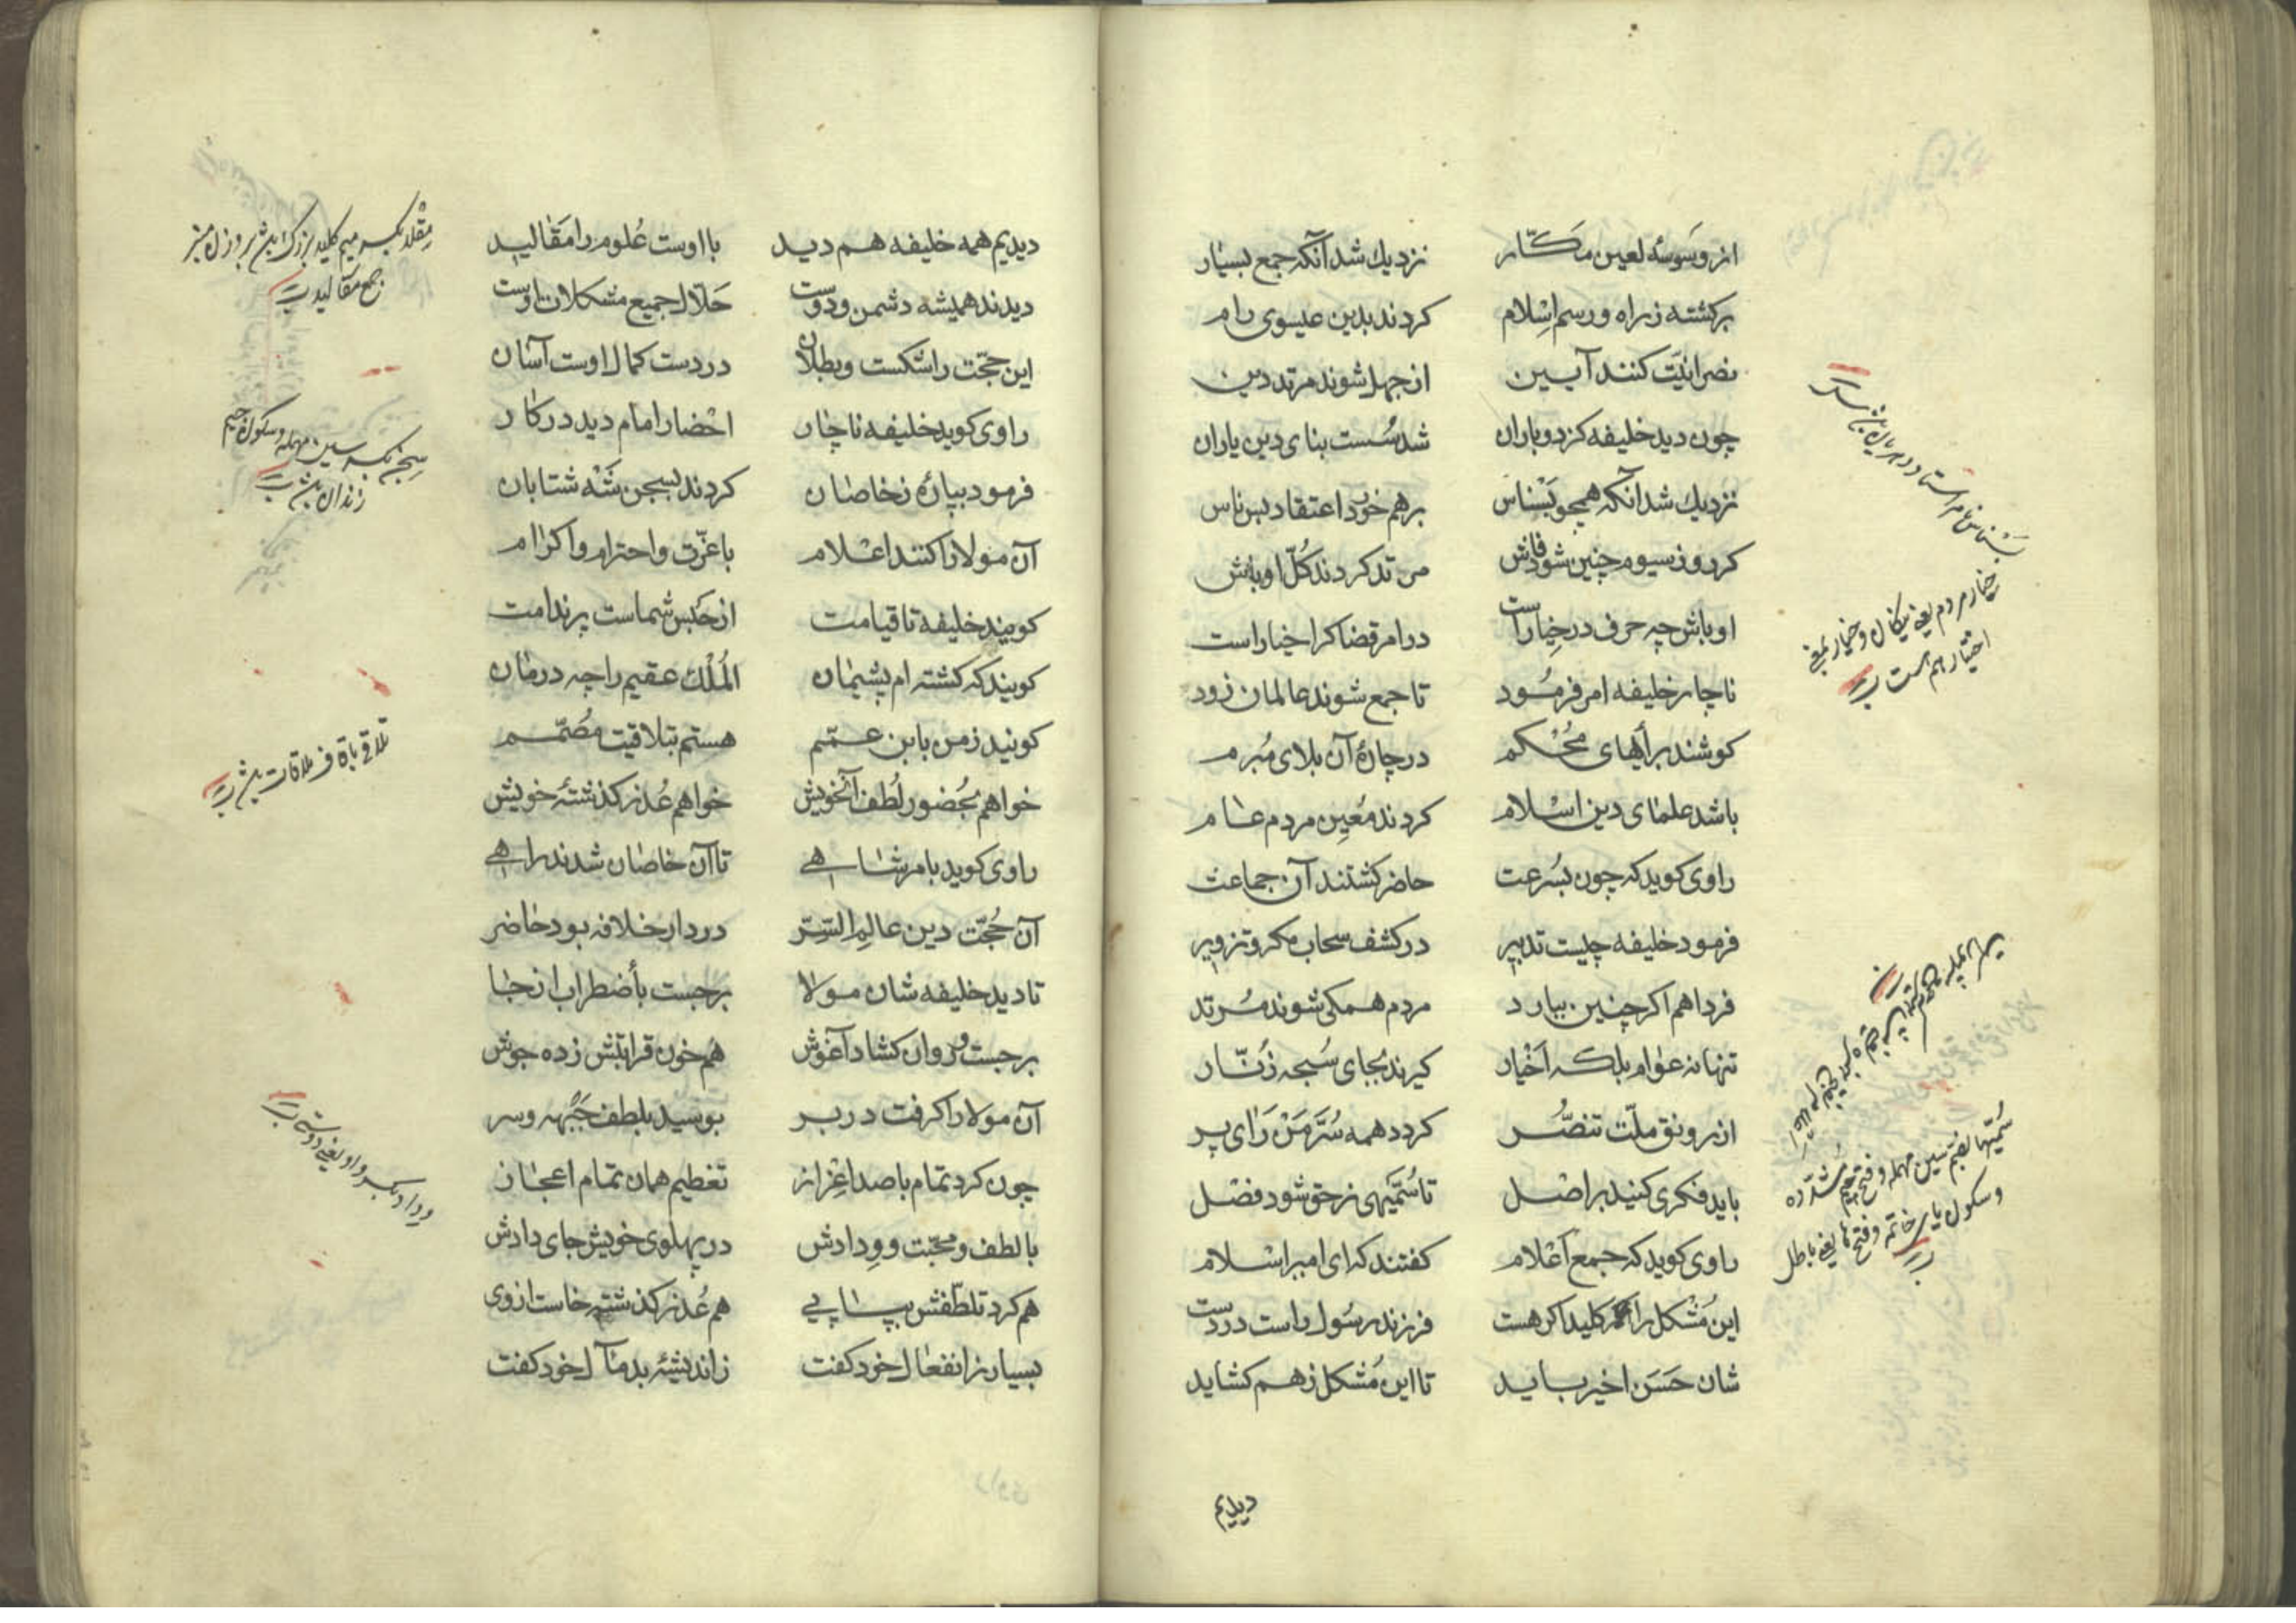 از وَسوسهٔ لعین مَکّار نزدیك شد آنکه جمع بسیار
برکشته ز راه و رسم اسلام کردند بدین عیسوی رام
نصرانیّت کنند آیین از جهل شوند مرتد دین
چون دید خلیفه کز دو باران شد سُست بنای دین یاران
نزدیك شد آنکه همچو بَسْناس برهم خورد اعتقاد بس ناس
کر روز سیوم چنین شود فاش مرتد کردند کُلّ اوباش
اوباش چه حرف در خیار است در امر قضا کرا خیار است
ناچار خلیفه امر فرمُود تا جمع شوند عالمان زود
کوشند برأیهای مُحْکم در چارهٔ آن بلای مُبرم
باشد علمای دین اسلام کردند مُعین مردم عام
راوی کوید که چون بسُرعت حاضر کشتند آن جماعت
فرمود خلیفه چیست تدبیر در کشف سحاب مکر و تزویر
فردا هم اکر چنین ببارد مردم همکی شوند مُرتد
تنها نه عوام بلکه اَخْیار کیرند بجای سُبحه زُنّار
از رونق ملّت تنصُّر کردد همه سُرَّ مَنْ رَای پر
باید فکری کنید بر اصل تا سُمَّیهی ز حق شود فصل
راوی کوید که جمع اَعْلام کفتند که ای امیر اسلام
این مُشکل را کلید اکر هست فرزند رسُول راست در دست
شان حَسَن اخیر باید تا این مُشکل ز هم کشاید
بَسْناس نام
خیار مردم یعنی نیکان و خیار بمعنی
اختیار هم است
سُمَّیها بضم سین مهمله و فتح میم مُشدّده
و سکون یای خاتمه و فتح ها یعنی باطل
دیدیم
دیدیم همه خلیفه هم دید با اوست عُلوم را مَقالید
دیدند همیشه دشمن و دوست حَلّال جمیع مشکلات اوست
این حجّت را شکست و بطلان در دست کمال اوست آسان
راوی کوید خلیفه ناچار احْضار امام دید در کار
فرمود ببپارهٔ ز خاصان کردند بسجن شَه شتابان
آن مولا را کنند اعْلام با عزّت و احترام و اکرام
کویید خلیفه تا قیامت از حَبْس شماست پر ندامت
کویید که کشته ام پشیمان المُلْك عقیم را چه درمان
کویید ز من بابن عمّم هستم بتلاقیت مُصَمّم
خواهم بحُضور لُطف آنخویش خواهم عُذر کذشتهٔ خویش
راوی کوید بامر شاهی تا آن خاصان شدند راهی
آن حُجّت دین عالِم السِّتر در دار خلافه بود حاضر
تا دید خلیفه شان مولا برجست بأضطراب از جا
برجست و روان کشاد آغوش هم خون قرابتش زده جوش
آن مولا را کرفت در بر بوسید بلطف جَبْهه و سر
چون کرد تمام با صد اعْزاز تعظیم همان تمام اعجاز
با لطف و محبّت و وِدادش در پهلوی خویش جای دادش
هم کرد تلطّفش بپیاپی هم عُذر کذشته خاست از وی
بسیار ز انفعال خود کفت ز اندیشهٔ بد مآل خود کفت
مِقْلد بکسر میم کلید بزرک باشد بر وزن منبر
جمع مقالید
سِجن بکسر سین مهمله و سکون جیم
زندان باشد
تلاقی یافتن ملاقات باشد
وِداد بکسر واو یعنی دوستی